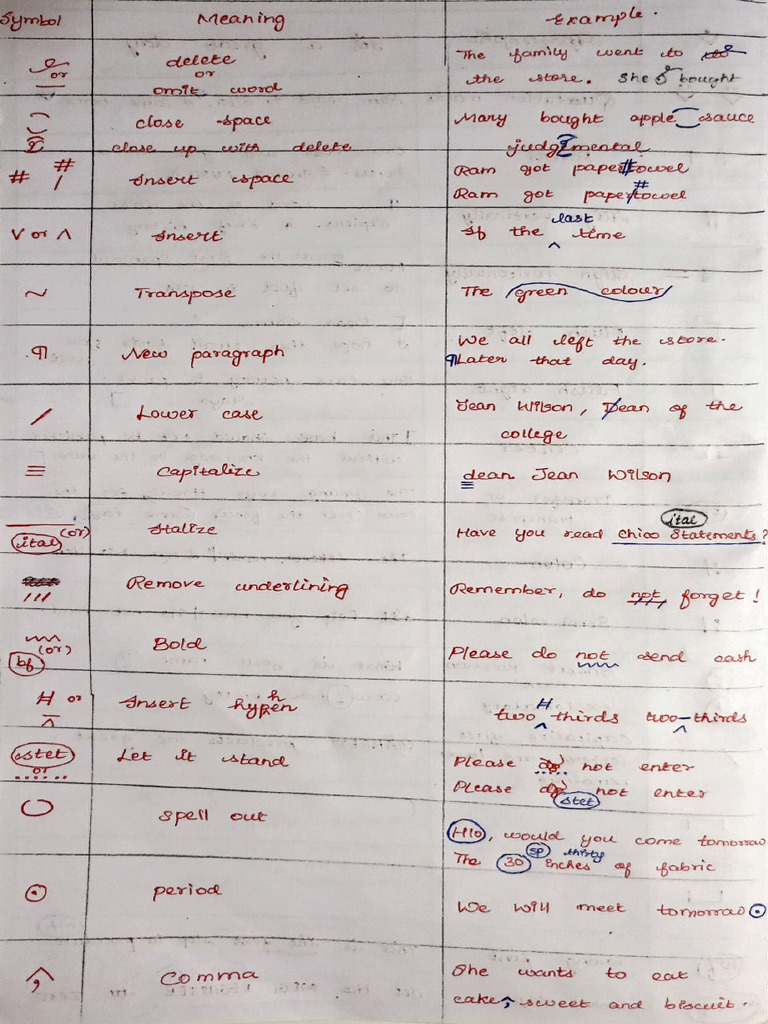 Symbol Meaning Example.
or delete or omit word The family went to to the store. She bought
close space Mary bought apple sauce
close up with delete judgemental
# # / Insert space Ram got paper#towel
Ram got paper/towel #
V or ʌ Insert If the last ʌ time
~ Transpose The green colour
¶ New paragraph We all left the store.
¶Later that day.
/ Lower case Jean Wilson, Dean of the
college
≡ Capitalize dean Jean Wilson
(or) ital Italize Have you read Chico Statements? ital
/// Remove underlining Remember, do not forget!
(or) bf Bold Please do not send cash
H or ʌ Insert hyphen two H ʌ thirds two-thirds ʌ
stet or ...... Let it stand Please do not enter
Please do not enter stet
Spell out Hlo, would you come tomorrow
The 30 sp thirty inches of fabric
⊙ period We will meet tomorrow ⊙
, Comma She wants to eat
cake, sweet and biscuit.